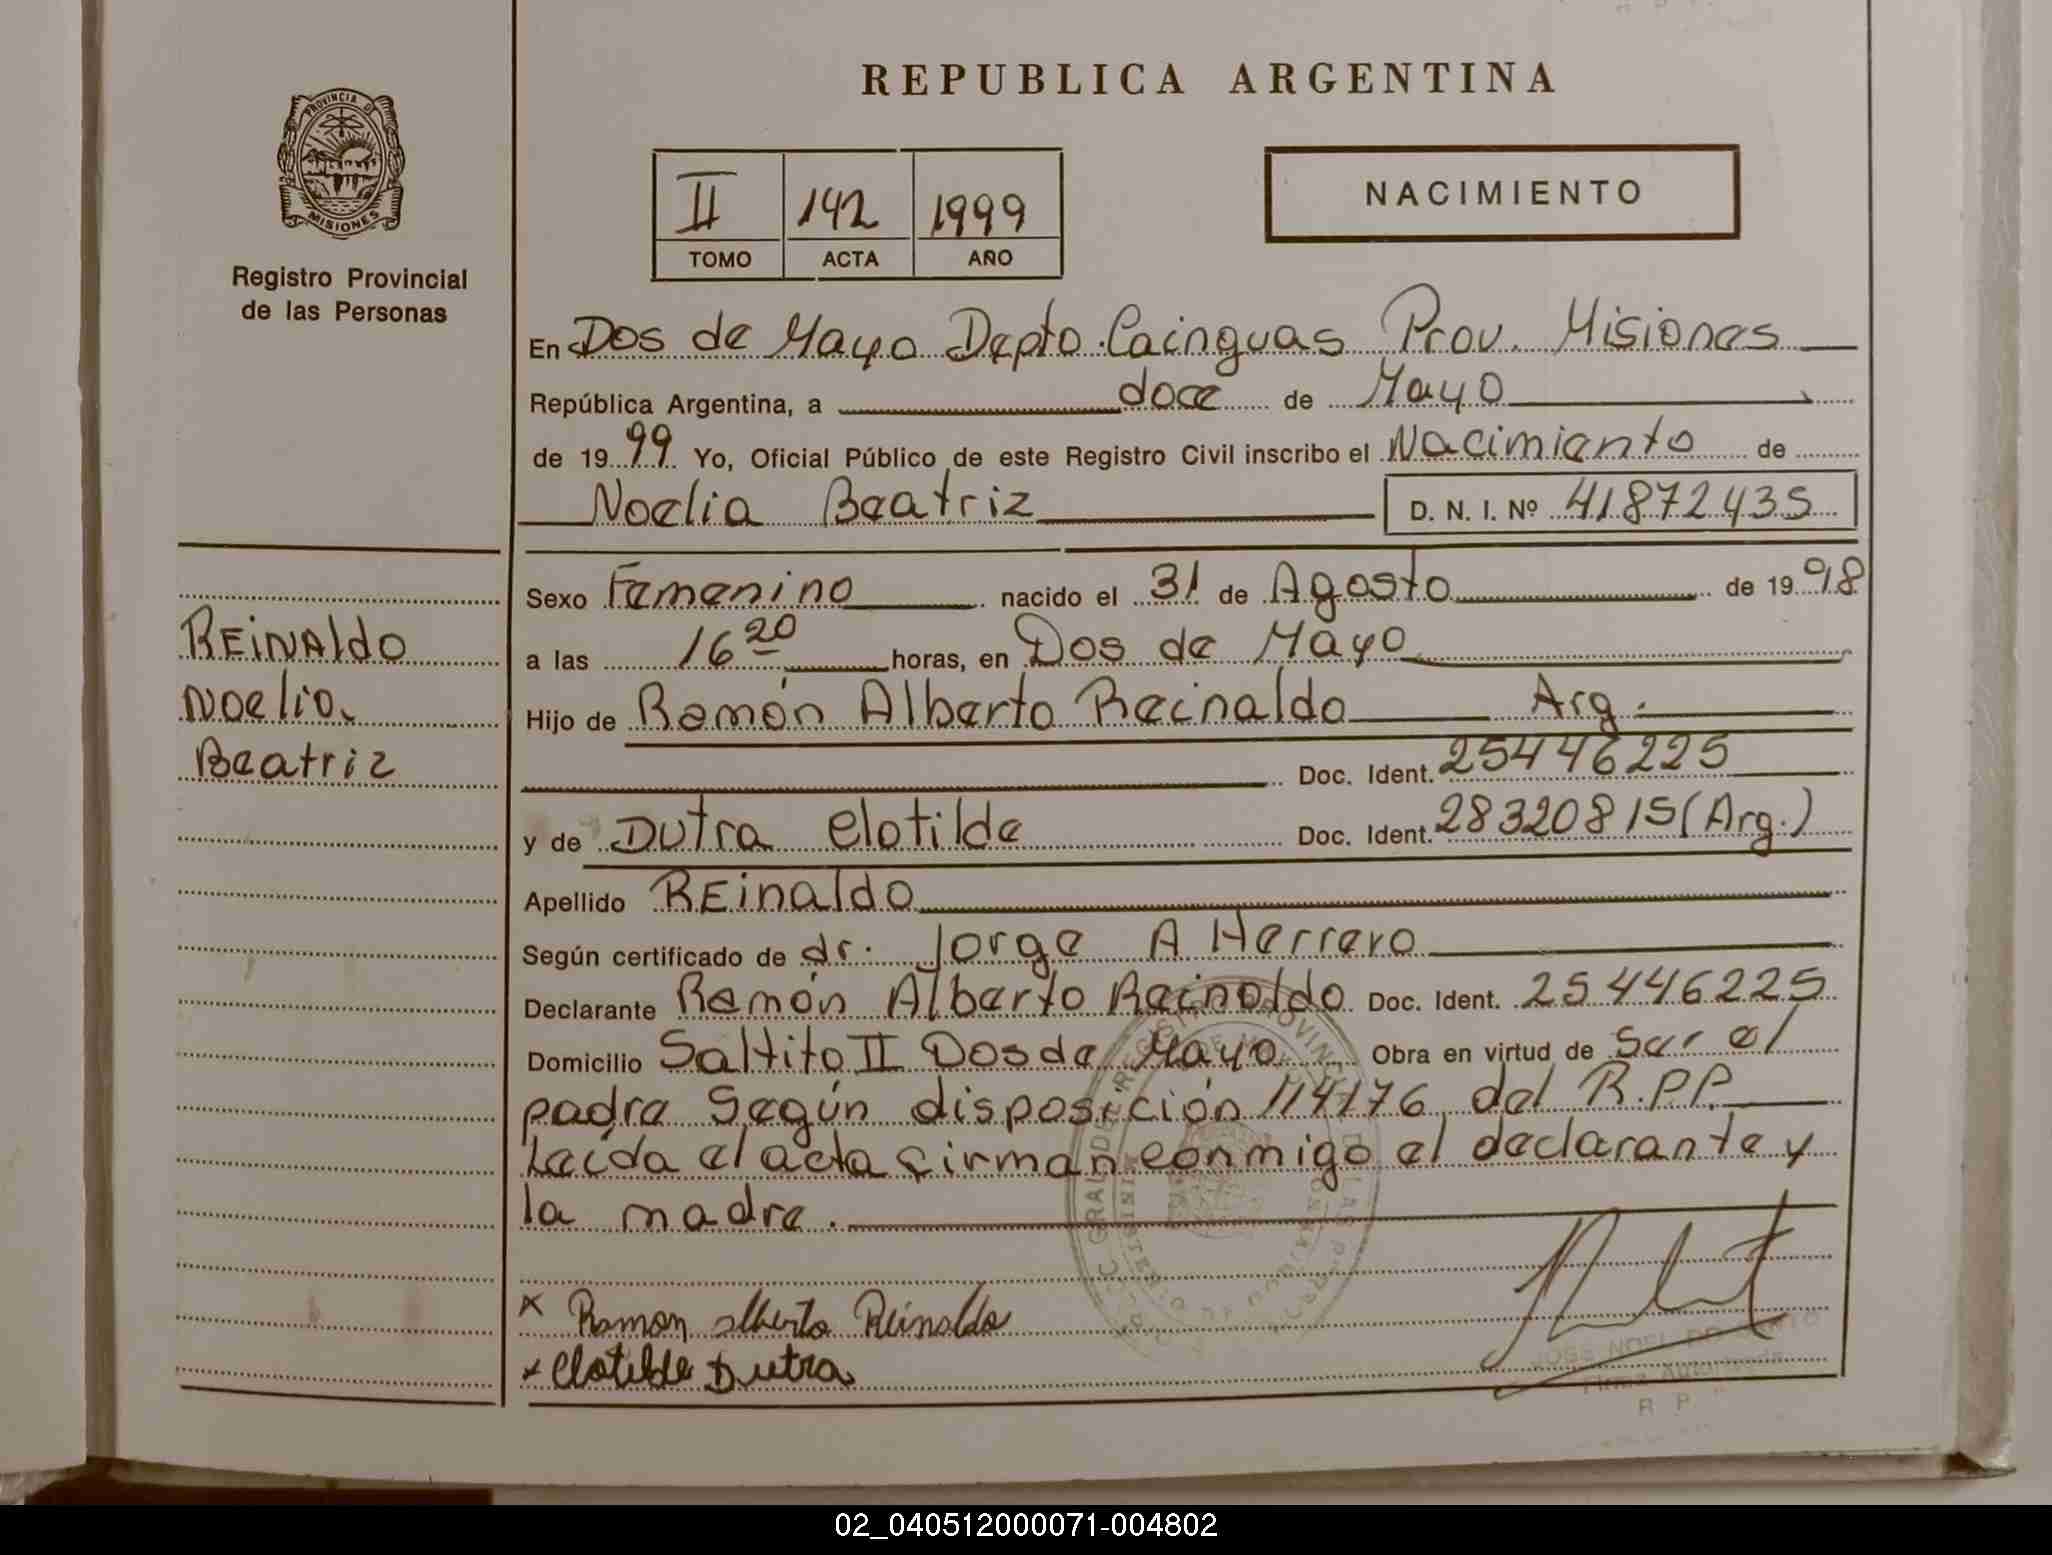 REPUBLICA ARGENTINA
PROVINCIA DE
MISIONES
Registro Provincial
de las Personas
II 142 1999
TOMO ACTA AÑO
NACIMIENTO
En Dos de Mayo Depto. Cainguas Prov. Misiones
República Argentina, a doce de Mayo
de 1999 Yo, Oficial Público de este Registro Civil inscribo el Nacimiento de
Noelia Beatriz D. N. I. Nº 41872435
Sexo Femenino nacido el 31 de Agosto de 1998
a las 16 20 horas, en Dos de Mayo
Hijo de Ramón Alberto Reinaldo Arg.
Doc. Ident. 25446225
y de Dutra Clotilde Doc. Ident. 28320815 (Arg.)
Apellido REinaldo
Según certificado de dr. Jorge A Herrero
Declarante Ramón Alberto Reinaldo Doc. Ident. 25446225
Domicilio Saltito II Dos de Mayo Obra en virtud de Ser el
padre Según disposición 114176 del R.P.P.
Leída el acta firman conmigo el declarante y
la madre.
REiNAldo
Noelia
Beatriz
x Ramon alberto Reinaldo
x Clotilde Dutra
JOSE NOEL DO
Firma Autorizada
R P
02_040512000071-004802